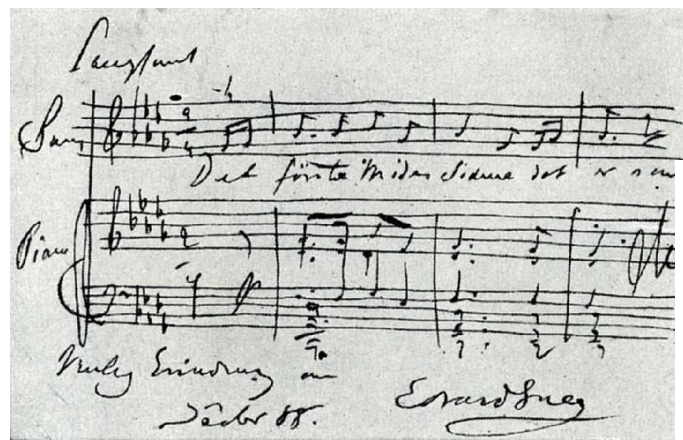 Langsomt
Sang
Det første Mødes Sødme det er som
Piano
Venlig Erindring
Edvard Grieg
Decbr 88.